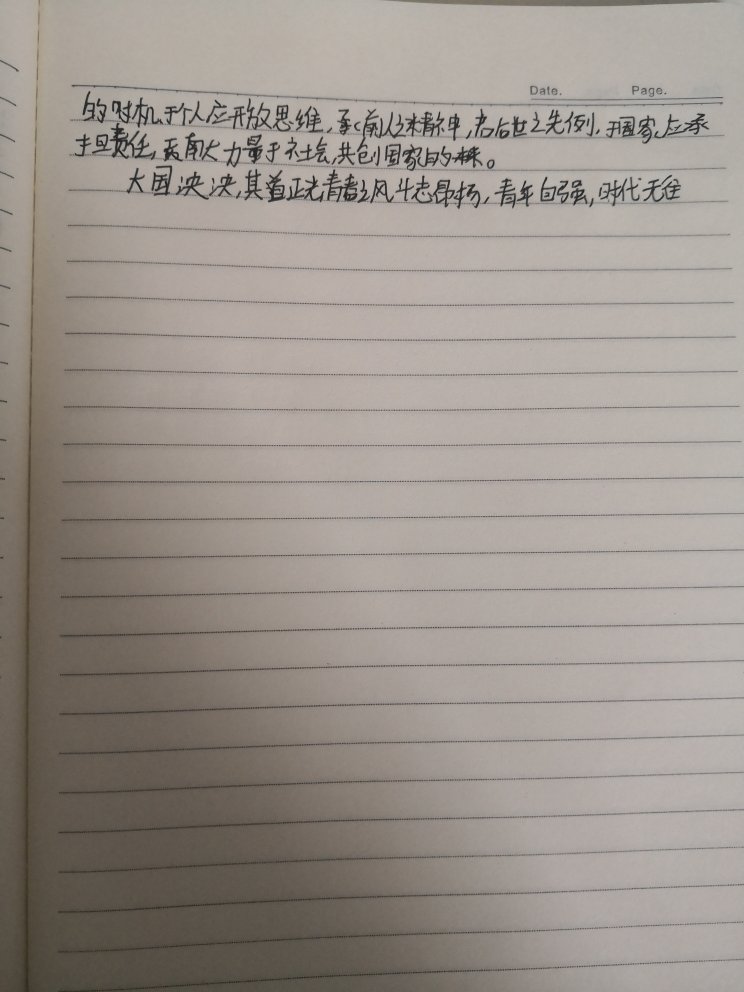 Date. Page.
的时机,于个人应开放思维,承前人之精神,为后世之先例,于国家,应承
担责任,贡献力量于社会,共创国家的未来。
大国泱泱,其道正光,青春之风,斗志昂扬,青年自强,时代无任